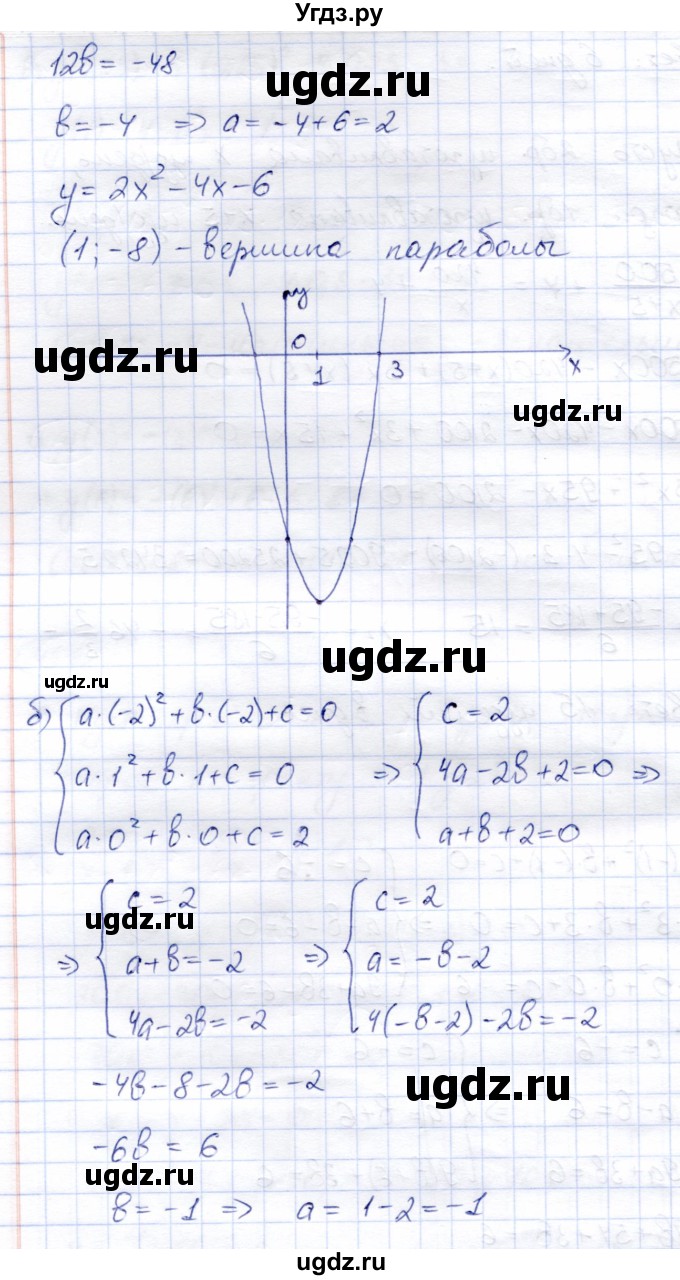 Угдз.ру
12в = -48
ugdz.ru
в = -4 => a = -4+6 = 2
y = 2x² - 4x - 6
(1; -8) - вершина параболы
y
0
ugdz.ru
1
3
x
ugdz.ru
ugdz.ru
ugdz.ru
б) { a·(-2)² + в·(-2) + c = 0
a·1² + в·1 + c = 0
a·0² + в·0 + c = 2
=> { c = 2
4a - 2в + 2 = 0 =>
a + в + 2 = 0
=> { c = 2
ugdz.ru
a + в = -2
4a - 2в = -2
=> { c = 2
a = -в - 2
4(-в-2) - 2в = -2
-4в - 8 - 2в = -2
ugdz.ru
-6в = 6
ugdz.ru
в = -1 => a = 1-2 = -1
ugdz.ru